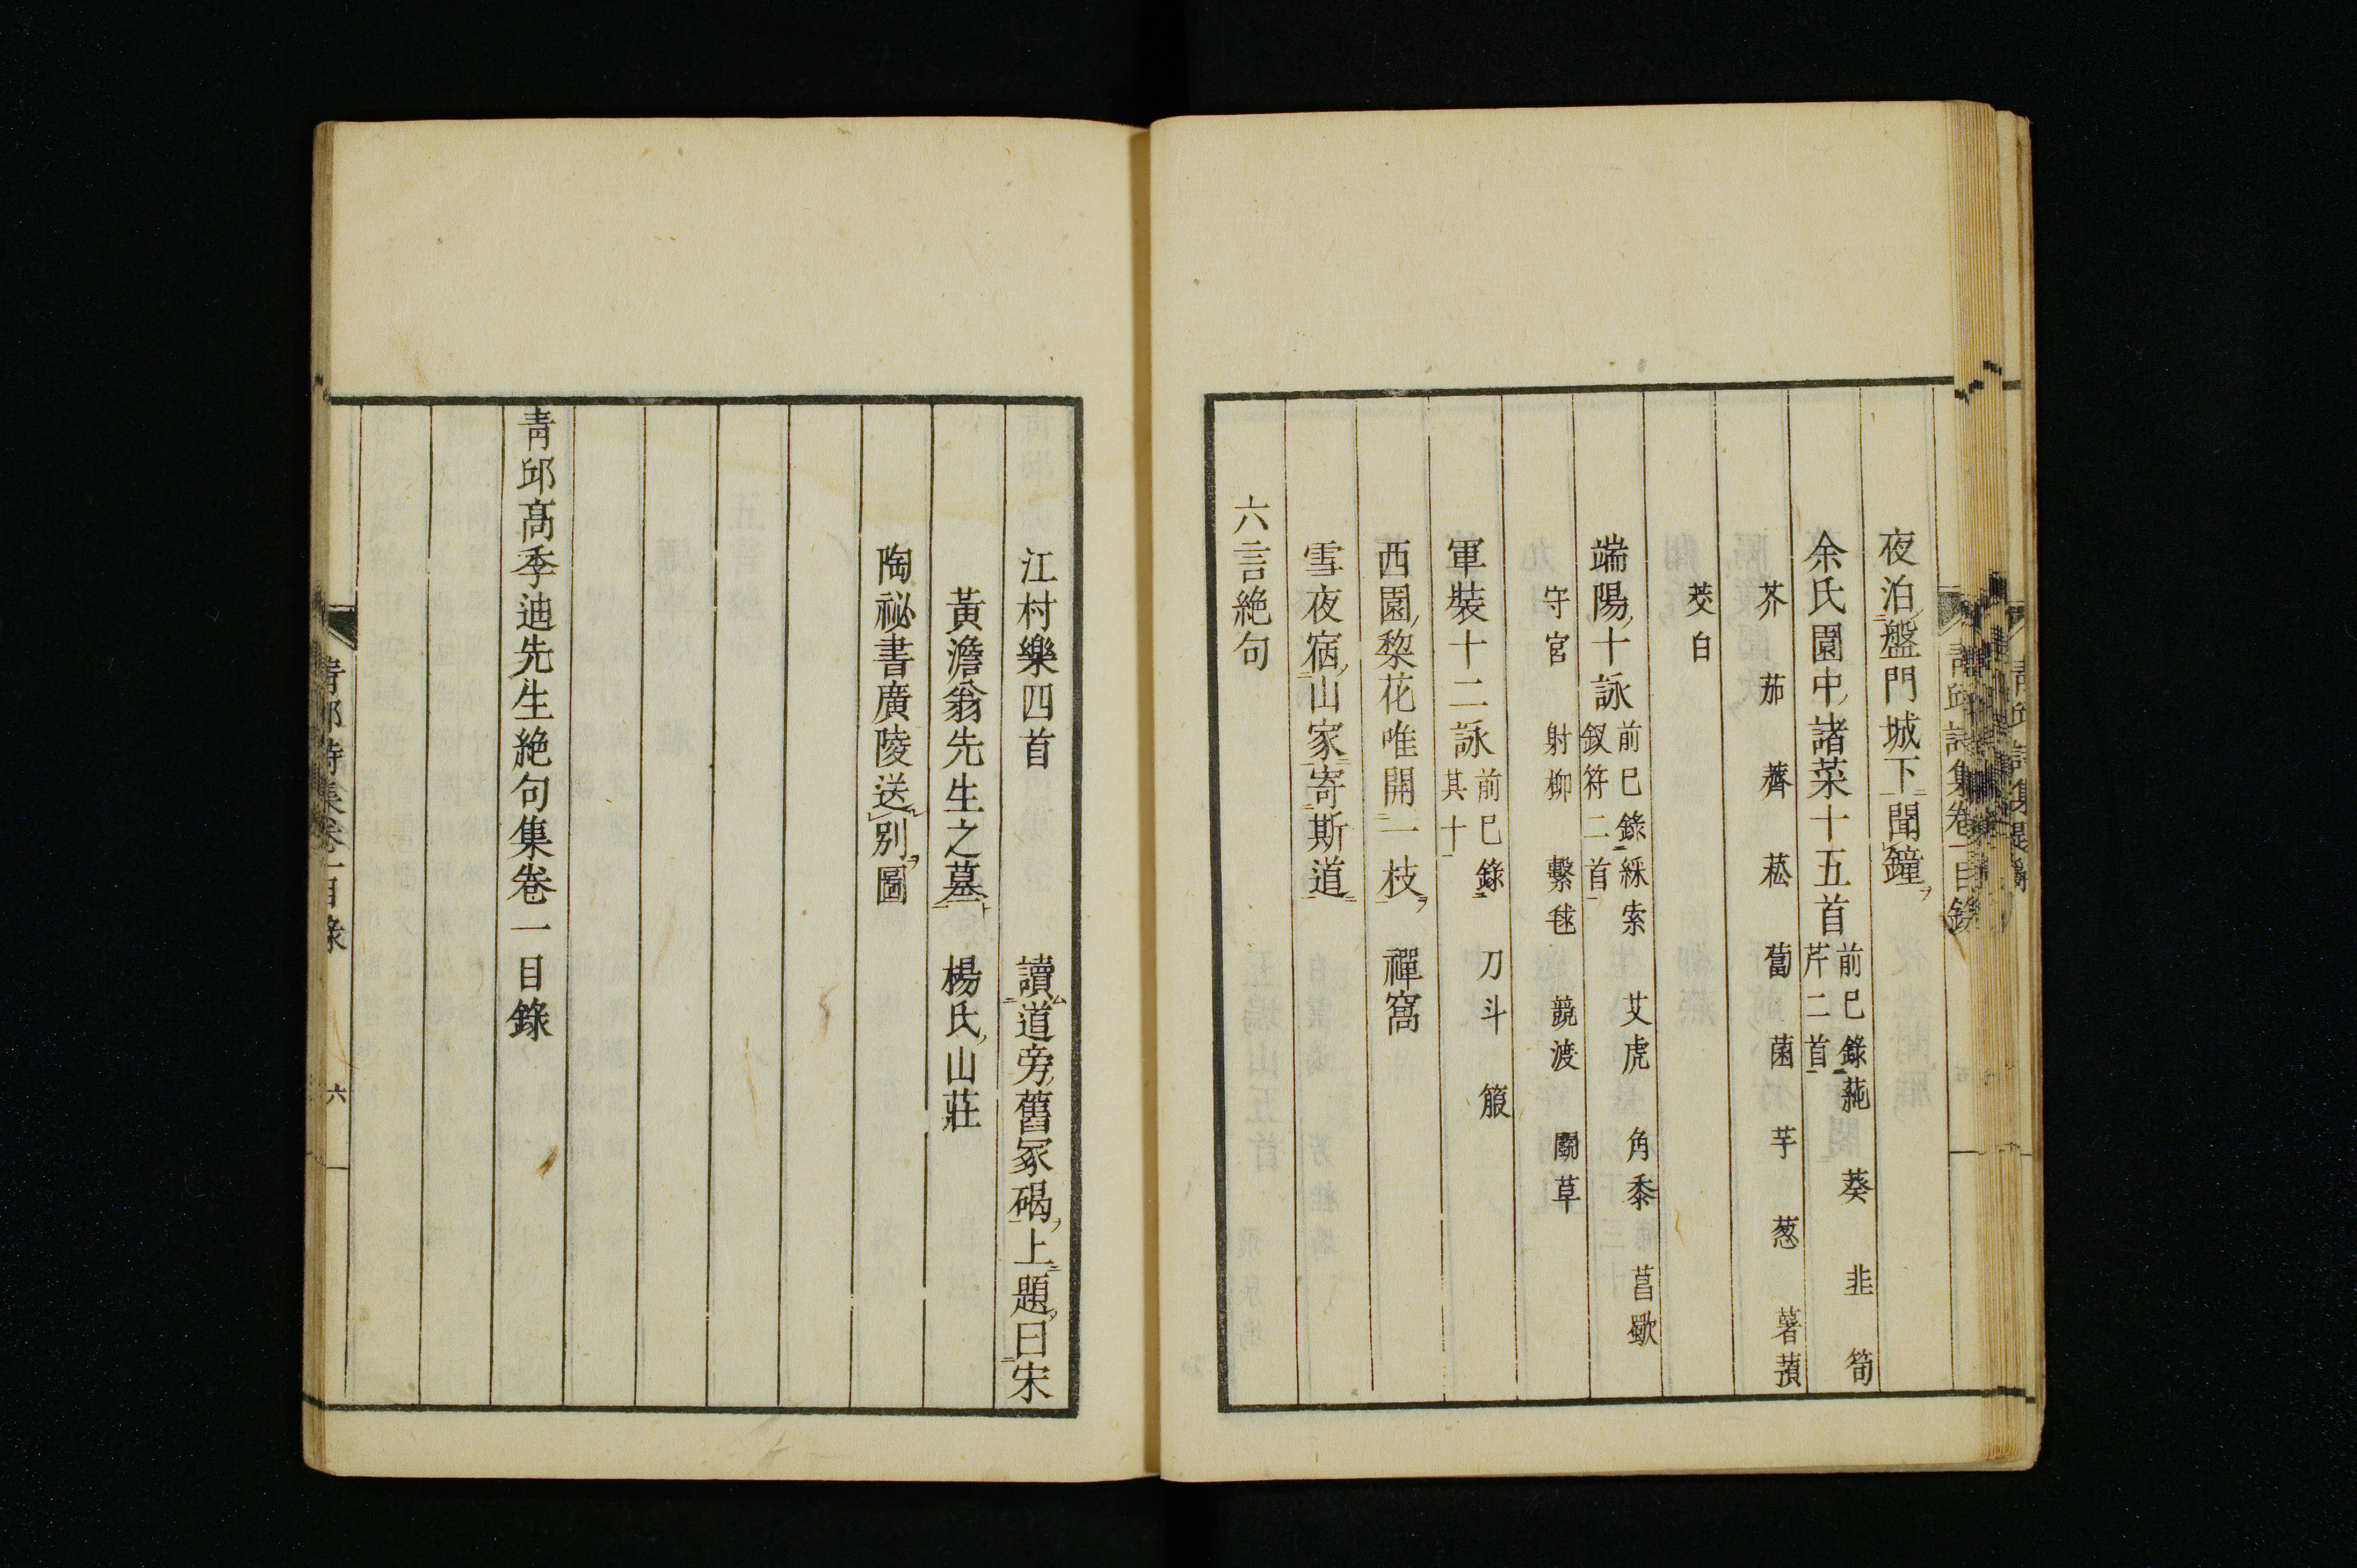 夜泊盤門城下聞鐘
余氏園中諸菜十五首 前巳錄 芹二首 蒓 葵 韭 筍
芥 茄 薺 菘 蔔 菌 芋 葱 薯蕷
茭白
端陽十詠 前巳錄 釵符二首 綵索 艾虎 角黍 菖歜
守宮 射柳 繫毬 競渡 鬭草
軍裝十二詠 前巳錄 其十 刀斗 箙
西園梨花唯開一枝 禪窩
雪夜宿山家寄斯道
六言絶句
江村樂四首 讀道旁舊冢碣上題曰宋
黃澹翁先生之墓 楊氏山莊
陶祕書廣陵送別圖
青邱高季迪先生絶句集卷一目錄
青邱詩集卷一目錄
六